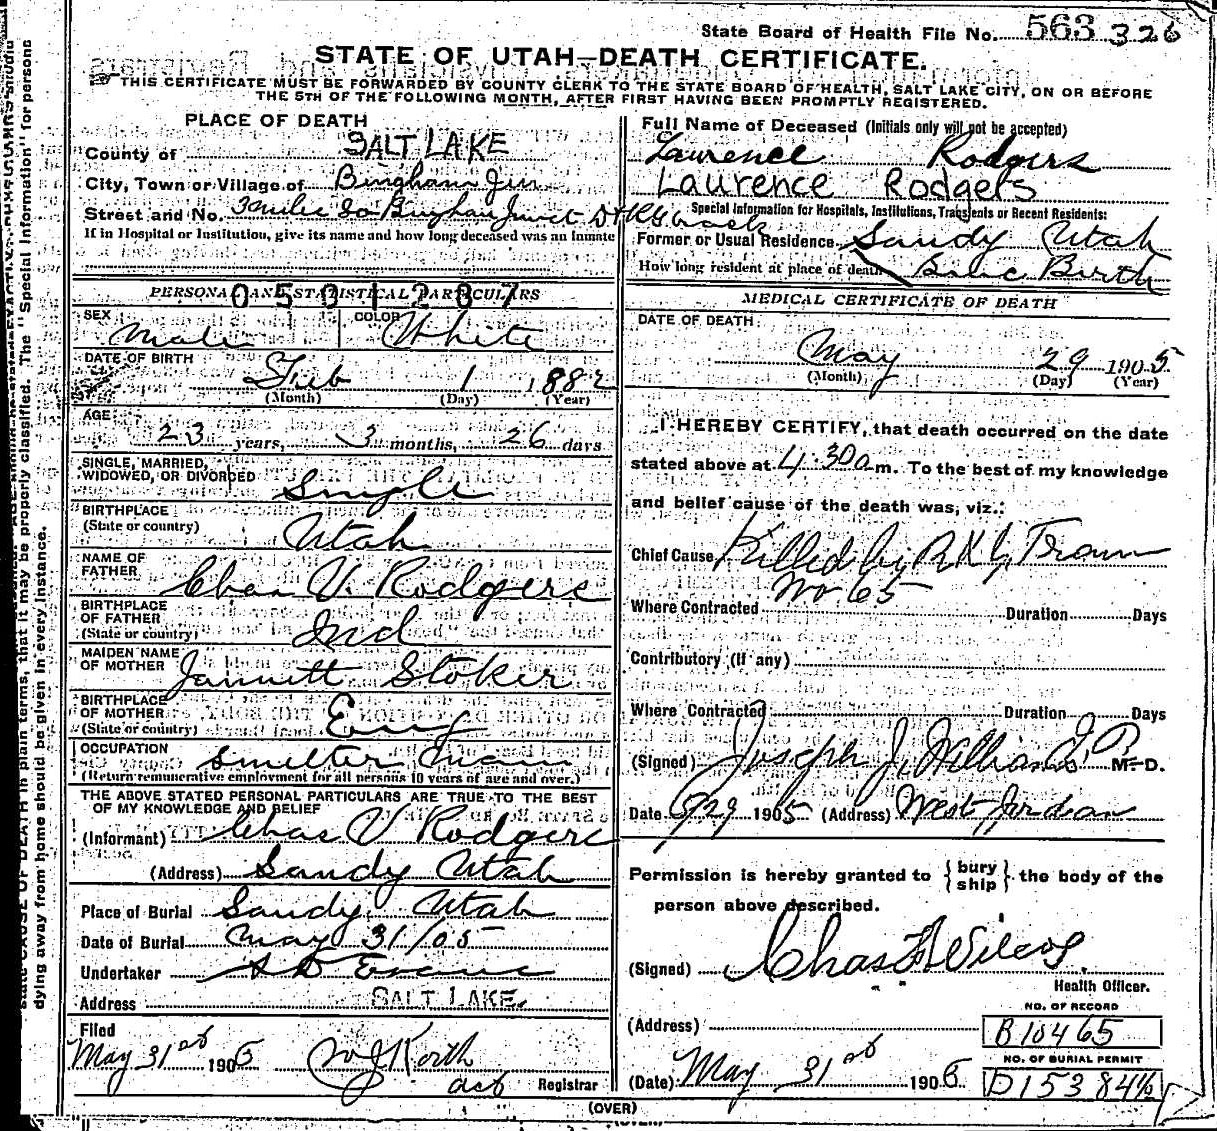 State Board of Health File No. 563 326
STATE OF UTAH—DEATH CERTIFICATE.
THIS CERTIFICATE MUST BE FORWARDED BY COUNTY CLERK TO THE STATE BOARD OF HEALTH, SALT LAKE CITY, ON OR BEFORE
THE 5TH OF THE FOLLOWING MONTH, AFTER FIRST HAVING BEEN PROMPTLY REGISTERED.
PLACE OF DEATH
County of SALT LAKE
City, Town or Village of Bingham Jun
Street and No. 3 miles So Bingham Junct D & RG track
If in Hospital or Institution, give its name and how long deceased was an inmate
PERSONAL AND STATISTICAL PARTICULARS
0501287
SEX Male COLOR White
DATE OF BIRTH
Feb 1 1882
(Month) (Day) (Year)
AGE
23 years, 3 months, 26 days
SINGLE, MARRIED,
WIDOWED, OR DIVORCED Single
BIRTHPLACE
(State or country) Utah
NAME OF
FATHER Chas V. Rodgers
BIRTHPLACE
OF FATHER
(State or country) Ind
MAIDEN NAME
OF MOTHER Jannett Stoker
BIRTHPLACE
OF MOTHER
(State or country) Eng
OCCUPATION Smelter man
(Return remunerative employment for all persons 10 years of age and over.)
THE ABOVE STATED PERSONAL PARTICULARS ARE TRUE TO THE BEST
OF MY KNOWLEDGE AND BELIEF
(Informant) Chas V Rodgers
(Address) Sandy Utah
Place of Burial Sandy, Utah
Date of Burial May 31/05
Undertaker S D Evans
Address SALT LAKE.
Filed
May 31st 1905 Korth
act Registrar
Full Name of Deceased (Initials only will not be accepted)
Laurence Rodgers
Laurence Rodgers
Special Information for Hospitals, Institutions, Transients or Recent Residents:
Former or Usual Residence Sandy Utah
How long resident at place of death Since Birth
MEDICAL CERTIFICATE OF DEATH
DATE OF DEATH
May 29 1905
(Month) (Day) (Year)
I HEREBY CERTIFY, that death occurred on the date
stated above at 4.30 a m. To the best of my knowledge
and belief cause of the death was, viz.:
Chief Cause Killed by R.G. Train
No 65
Where Contracted Duration Days
Contributory (If any)
Where Contracted Duration Days
(Signed) Joseph J. Williams J.P. M.D.
Date 5/29 1905 (Address) West Jordan
Permission is hereby granted to { bury
ship } the body of the
person above described.
(Signed) Chas F Wilcox.
Health Officer.
(Address)
NO. OF RECORD
B 10465
NO. OF BURIAL PERMIT
D 15384½
(Date) May 31st 1905
(OVER)
state CAUSE OF DEATH in plain terms, that it may be properly classified. The "Special Information" for persons
dying away from home should be given in every instance.